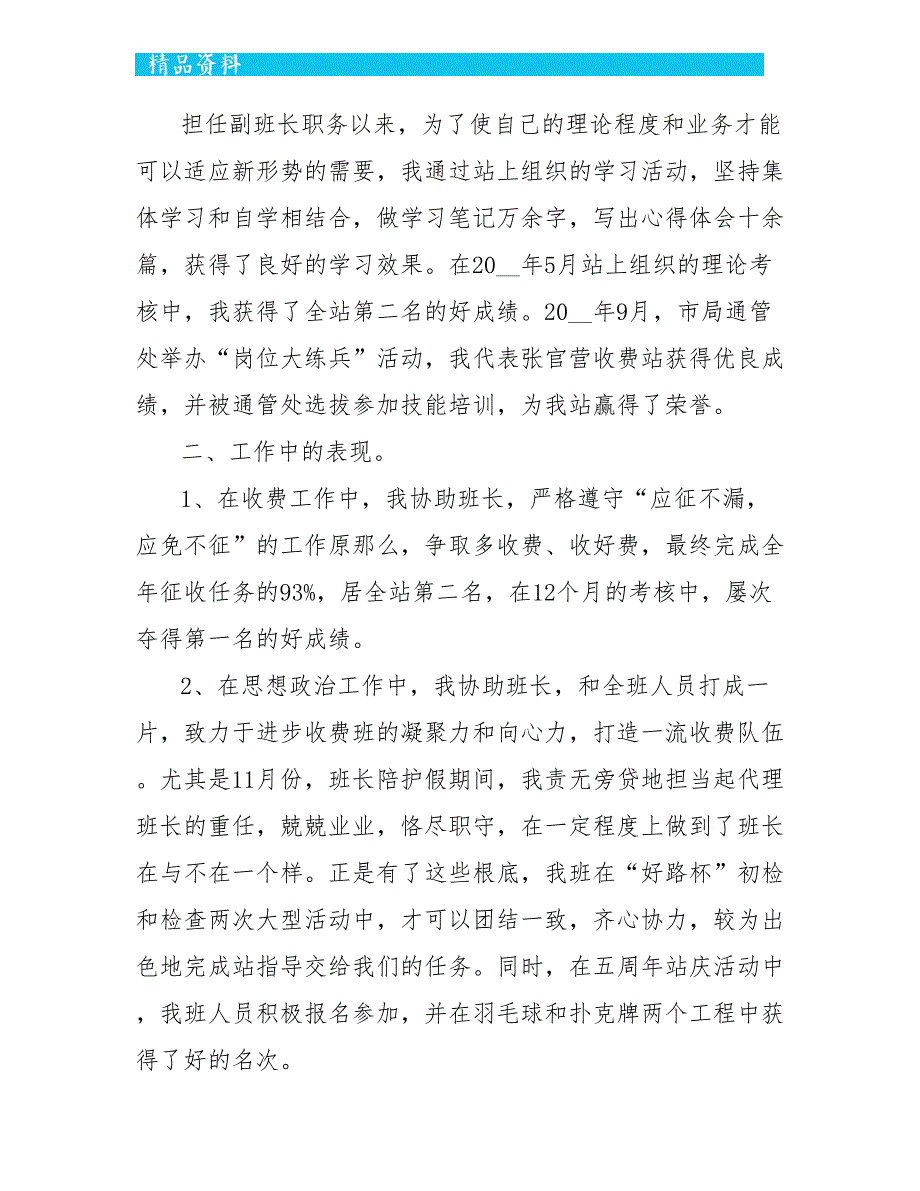 精品资料
担任副班长职务以来，为了使自己的理论程度和业务才能
可以适应新形势的需要，我通过站上组织的学习活动，坚持集
体学习和自学相结合，做学习笔记万余字，写出心得体会十余
篇，获得了良好的学习效果。在20__年5月站上组织的理论考
核中，我获得了全站第二名的好成绩。20__年9月，市局通管
处举办“岗位大练兵”活动，我代表张官营收费站获得优良成
绩，并被通管处选拔参加技能培训，为我站赢得了荣誉。
二、工作中的表现。
1、在收费工作中，我协助班长，严格遵守“应征不漏，
应免不征”的工作原那么，争取多收费、收好费，最终完成全
年征收任务的93%，居全站第二名，在12个月的考核中，屡次
夺得第一名的好成绩。
2、在思想政治工作中，我协助班长，和全班人员打成一
片，致力于进步收费班的凝聚力和向心力，打造一流收费队伍
。尤其是11月份，班长陪护假期间，我责无旁贷地担当起代理
班长的重任，兢兢业业，恪尽职守，在一定程度上做到了班长
在与不在一个样。正是有了这些根底，我班在“好路杯”初检
和检查两次大型活动中，才可以团结一致，齐心协力，较为出
色地完成站指导交给我们的任务。同时，在五周年站庆活动中
，我班人员积极报名参加，并在羽毛球和扑克牌两个工程中获
得了好的名次。